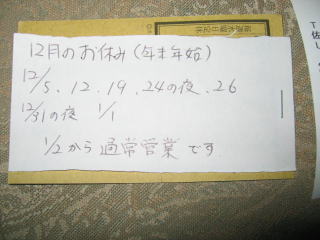 12月のお休み(年末年始)
12/5、12、19、24の夜、26
12/31の夜 1/1
1/2から通常営業です